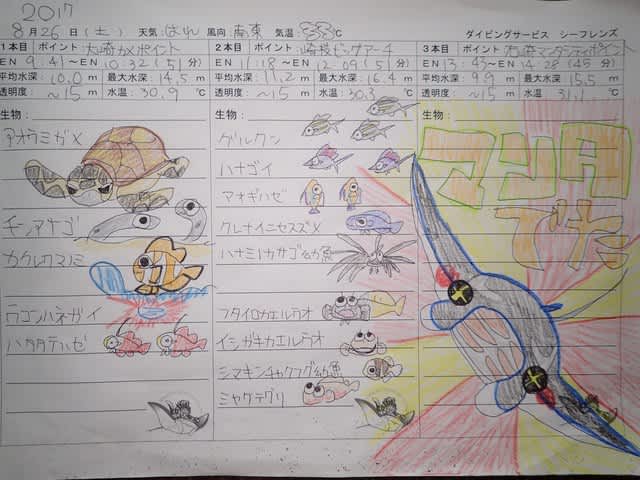 2017
8月26日(土) 天気:はれ 風向:南東 気温:33℃ ダイビングサービス シーフレンズ
1本目 ポイント:大崎カメポイント
EN 9:41〜EN 10:32(51分)
平均水深:10.0m 最大水深:14.5m
透明度:〜15m 水温:30.9℃
生物:
アオウミガメ
モンアナゴ
カクレクマノミ
ウコンハネガイ
ハタタテハゼ
2本目 ポイント:崎枝ビッグアーチ
EN 11:18〜EN 12:09(51分)
平均水深:11.2m 最大水深:16.4m
透明度:〜15m 水温:30.3℃
生物:
グルクン
ハナゴイ
マオギハゼ
クレナイニセスズメ
ハナミノカサゴ幼魚
フタイロカエルウオ
イシガキカエルウオ
シマキンチャクフグ幼魚
ミヤケテグリ
3本目 ポイント:石崎マンタシティポイント
EN 13:43〜EN 14:28(45分)
平均水深:9.9m 最大水深:15.5m
透明度:〜15m 水温:31.1℃
生物:
マンタ
でた